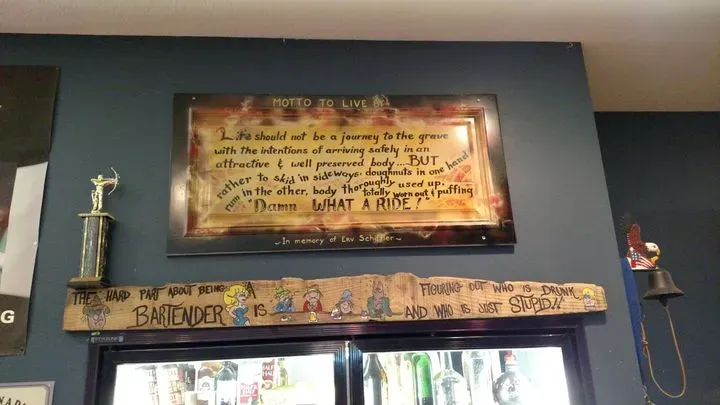 MOTTO TO LIVE BY
Life should not be a journey to the grave
with the intentions of arriving safely in an
attractive & well preserved body... BUT
rather to skid in sideways, doughnuts in one hand
rum in the other, body thoroughly used up,
totally worn out & puffing
"Damn WHAT A RIDE!"
~In memory of Erv Schaffer~
THE HARD PART ABOUT BEING A
BARTENDER IS
FIGURING OUT WHO IS DRUNK
AND WHO IS JUST STUPID!!
G